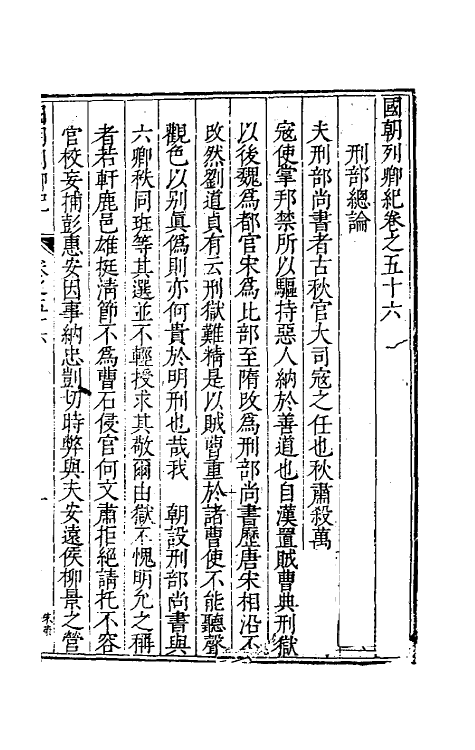 國朝列卿紀卷之五十六
刑部總論
夫刑部尚書者古秋官大司寇之任也秋肅殺萬
寇使掌邦禁所以驅持惡人納於善道也自漢置賊曹典刑獄
以後魏爲都官宋爲比部至隋改爲刑部尚書歷唐宋相沿不
改然劉道貞有云刑獄難精是以賊曹重於諸曹使不能聽聲
觀色以别眞僞則亦何貴於明刑也哉我　朝設刑部尚書與
六卿秩同班等其選並不輕授求其敬爾由獄不愧明允之稱
者若軒鹿邑雄挺清節不爲曹石侵官何文肅拒絶請托不容
官校妄捕彭惠安因事納忠剴切時弊與夫安遠侯柳景之營